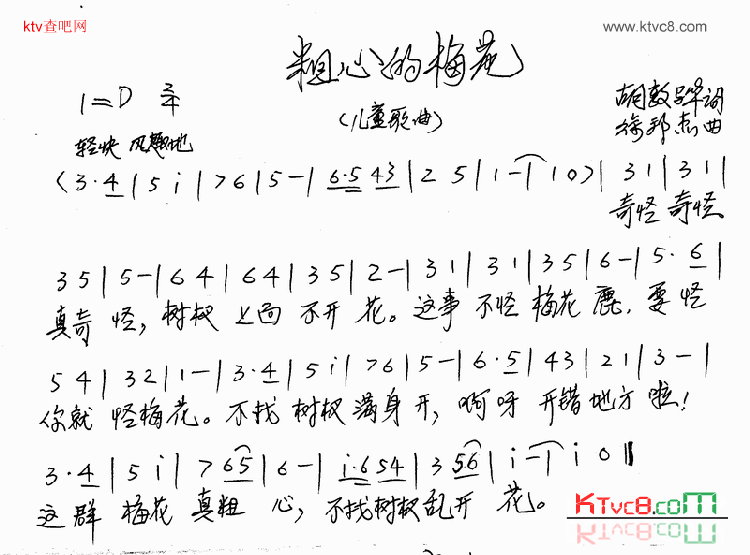 ktv查吧网
www.ktvc8.com
粗心的梅花
(儿童歌曲)
1=D 2/4
胡敦骅词
徐邦杰曲
轻快 风趣地
(3·4|5 i|7 6|5 -|6·5 4 3|2 5|1 -|1 0)|3 1|3 1|
奇怪 奇怪
3 5|5 -|6 4|6 4|3 5|2 -|3 1|3 1|3 5|6 -|5· 6|
真奇怪,树杈上面不开花。这事不怪梅花鹿,要怪
5 4|3 2|1 -|3·4|5 i|7 6|5 -|6·5|4 3|2 1|3 -|
你就怪梅花。不找树杈满身开,啊呀开错地方啦!
3·4|5 i|7 6 5|6 -|i·6 5 4|3 5 6|i -|i 0‖
这群梅花真粗心,不找树杈乱开花。
KTvc8.com